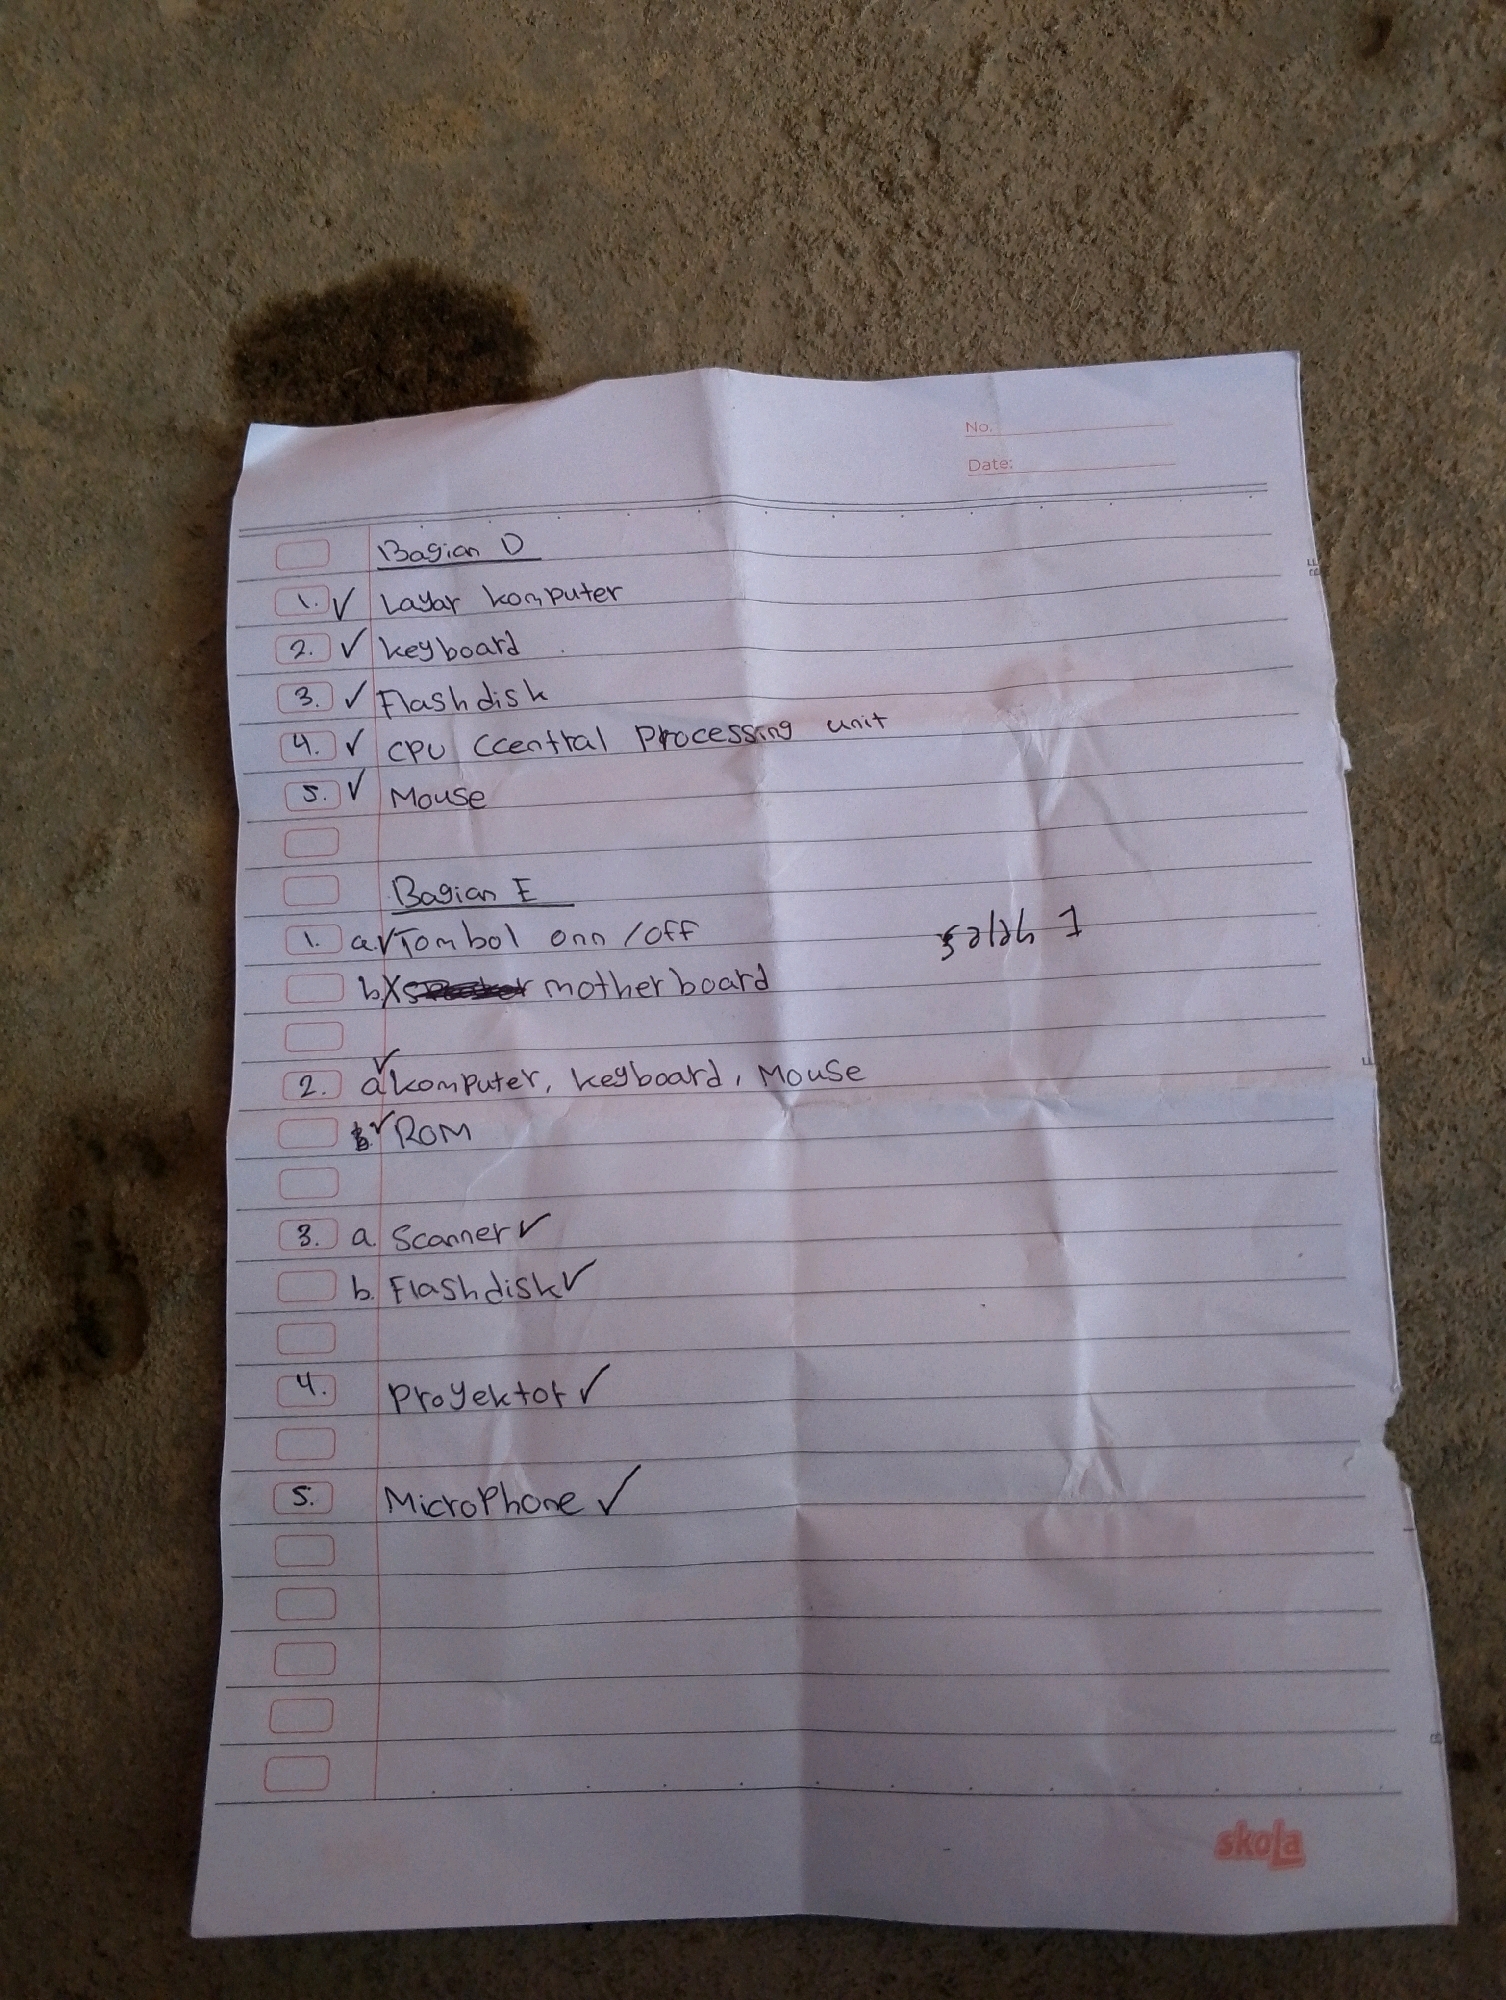 No.
Date:
Bagian D
1. ✓ Layar komputer
2. ✓ keyboard
3. ✓ Flashdisk
4. ✓ CPU Ccentral Processing unit
5. ✓ Mouse
Bagian E
1. a. ✓ Tombol onn / off
salah 1
b. X motherboard
2. a ✓ komputer, keyboard, Mouse
b. ✓ ROM
3. a. Scanner ✓
b. Flashdisk ✓
4. Proyektor ✓
5. Microphone ✓
skola